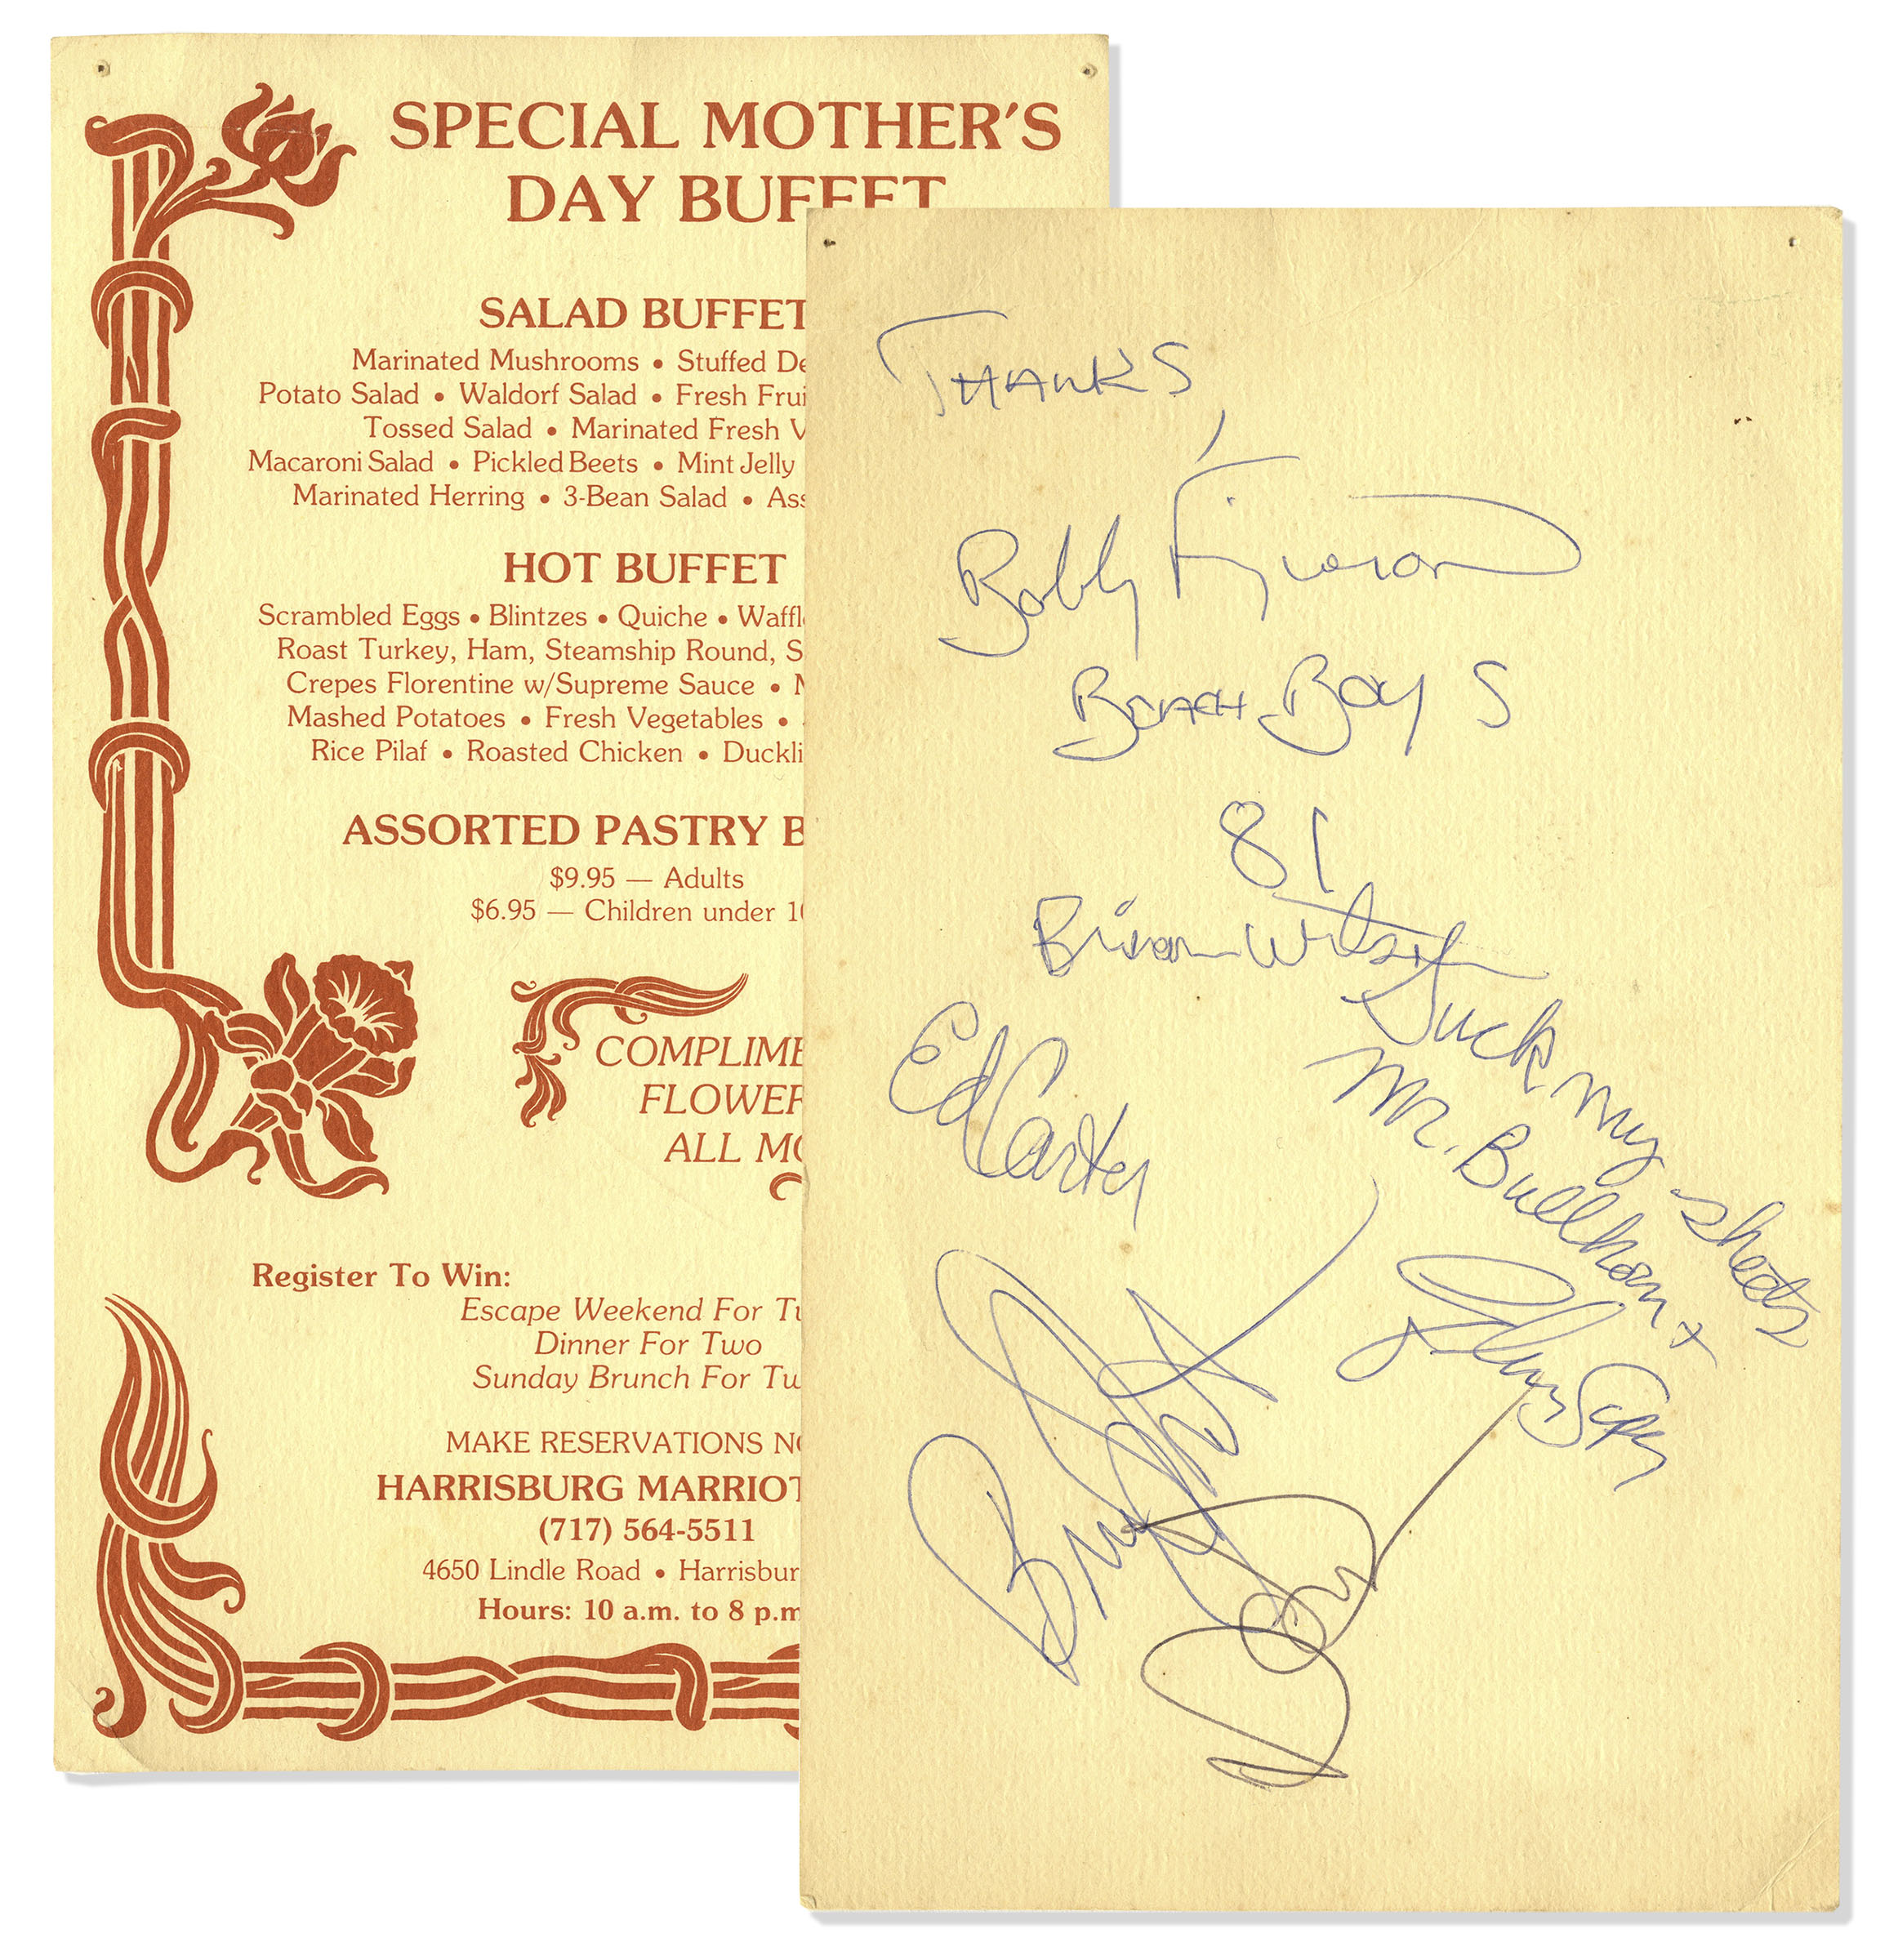 SPECIAL MOTHER'S
DAY BUFFET
SALAD BUFFET
Marinated Mushrooms • Stuffed De
Potato Salad • Waldorf Salad • Fresh Frui
Tossed Salad • Marinated Fresh V
Macaroni Salad • Pickled Beets • Mint Jelly
Marinated Herring • 3-Bean Salad • Ass
HOT BUFFET
Scrambled Eggs • Blintzes • Quiche • Waffl
Roast Turkey, Ham, Steamship Round, S
Crepes Florentine w/Supreme Sauce •
Mashed Potatoes • Fresh Vegetables •
Rice Pilaf • Roasted Chicken • Duckli
ASSORTED PASTRY B
$9.95 — Adults
$6.95 — Children under 10
COMPLIME
FLOWER
ALL MO
Register To Win:
Escape Weekend For Tw
Dinner For Two
Sunday Brunch For Tw
MAKE RESERVATIONS NO
HARRISBURG MARRIOT
(717) 564-5511
4650 Lindle Road • Harrisbur
Hours: 10 a.m. to 8 p.m
THANKS,
Bobby
BEACH BOYS
81
Brian Wilson
Suck my sheets
Mr. Bullhorn
Ed Carter
Bruce